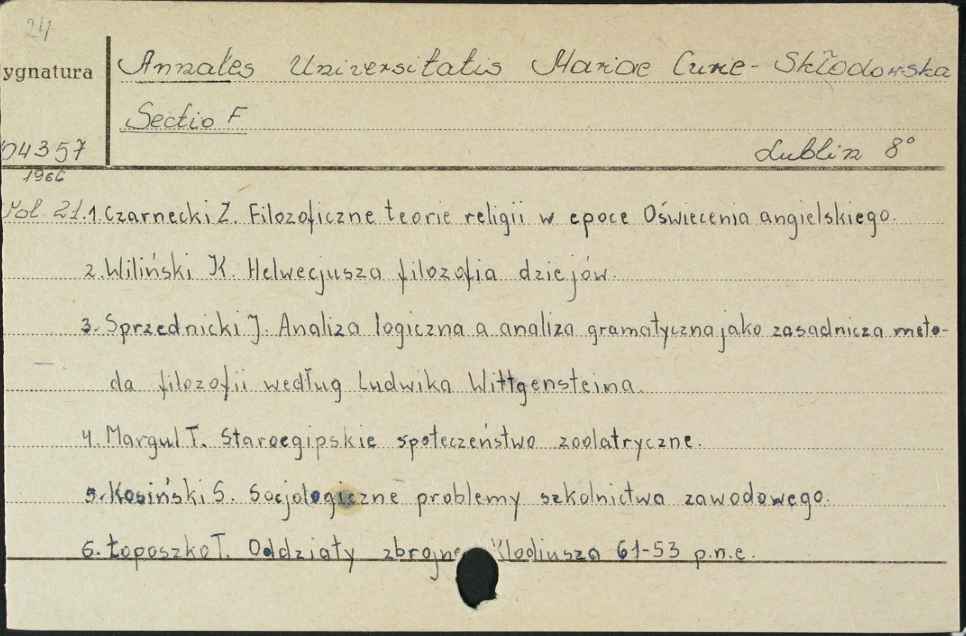 24
ygnatura Annales Universitatis Mariae Curie-Skłodowska
Sectio F
04357 Lublin 8°
1966
Vol 21. 1. Czarnecki Z. Filozoficzne teorie religii w epoce Oświecenia angielskiego.
2. Wiliński K. Helwecjusza filozofia dziejów.
3. Sprzednicki J. Analiza logiczna a analiza gramatyczna jako zasadnicza meto-
da filozofii według Ludwika Wittgensteina.
4. Margul T. Staroegipskie społeczeństwo zoolatryczne.
5. Kosiński S. Socjologiczne problemy szkolnictwa zawodowego.
6. Łoposzko T. Oddziały zbrojne Klodiusza 61-53 p.n.e.